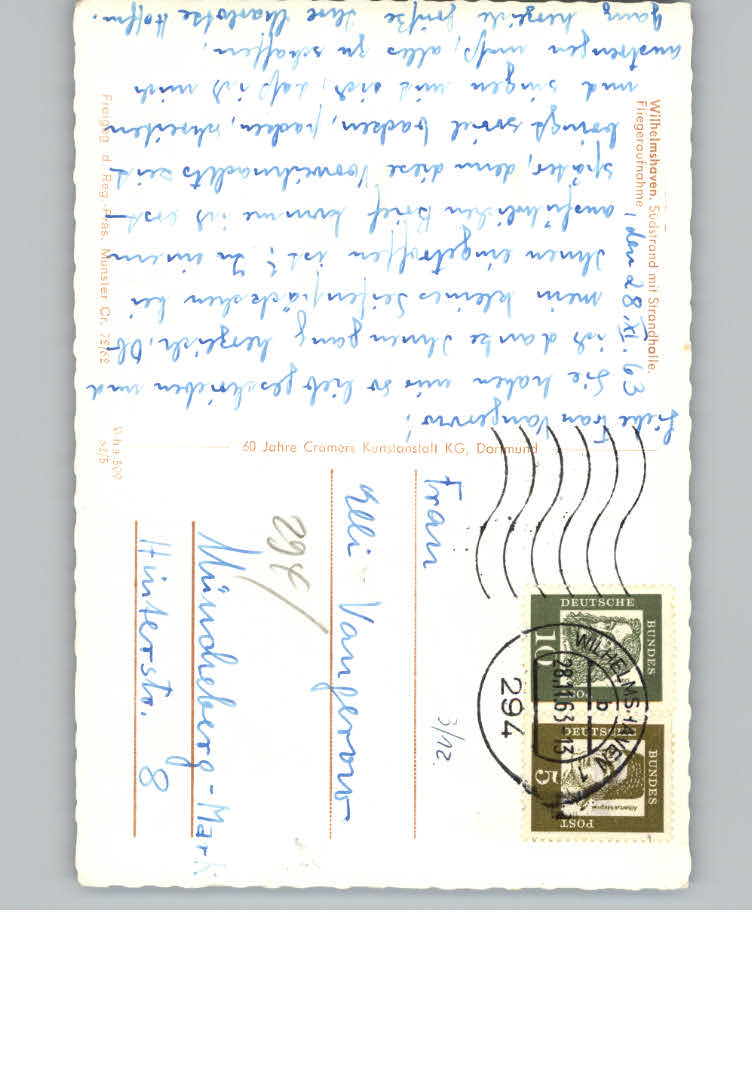 Wilhelmshaven. Südstrand mit Strandhalle.
Fliegeraufnahme
, den 28. XI. 63
Liebe Frau Vangerow!
Sie haben mir so lieb geschrieben und
ich danke Ihnen ganz herzlich. Ob
mein kleines Seifenpäckchen bei
Ihnen eingetroffen ist? Zu einem
ausführlichen Brief komme ich erst
später, denn diese Vorweihnachtszeit
bringt soviel backen, packen, schreiben
und singen mit sich, daß ich mich
anstrengen muß, alles zu schaffen.
Ganz herzliche Grüße Ihre Charlotte Hoffm.
Freigeg. d. Reg.-Präs. Münster Cr.
Whs 509
60 Jahre Cramers Kunstanstalt KG, Dortmund
Frau
Elli Vangerow
294
Müncheberg-Mark
Hinterstr. 8
3/12.
DEUTSCHE
BUNDES
10
DEUTSCHE
BUNDES
POST
5
Albertus Magnus
WILHELMSHAVEN 1
b
28.11.63-13
294